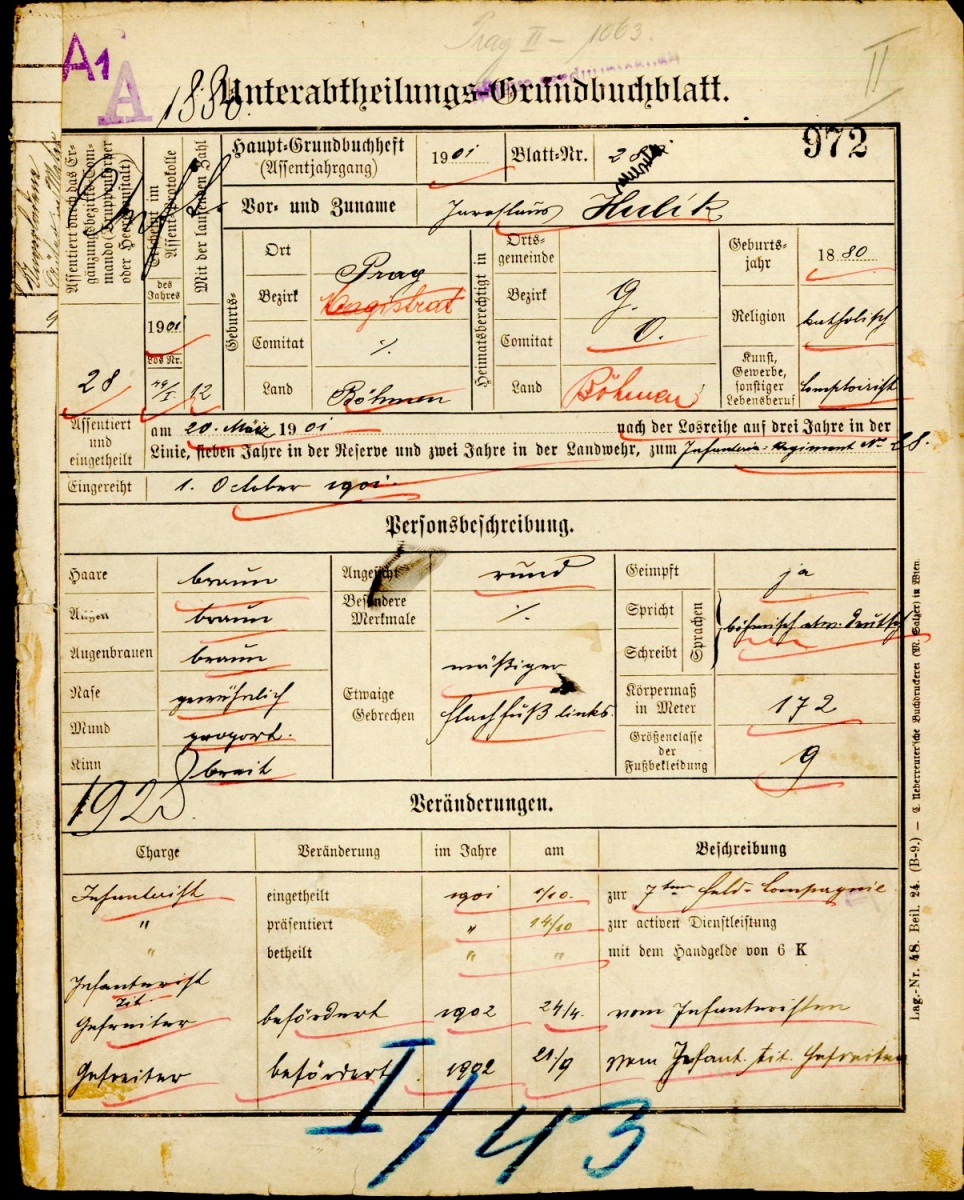 Prag II – 1063.
II
A1
A
1880
Unterabtheilungs-Grundbuchblatt.
972
Assentiert durch das Ergänzungsbezirks-Commando (Truppenkörper oder Heeresanstalt)
28
Erscheint im Assent-Protokolle
des Jahres
1901
Los Nr.
Mit der laufenden Zahl
12
Haupt-Grundbuchheft
(Assentjahrgang)
1901
Blatt-Nr.
Vor- und Zuname
Jaroslaus Hulík
Geburts-
Ort
Prag
Bezirk
Magistrat
Comitat
./.
Land
Böhmen
Heimatsberechtigt in
Ortsgemeinde
Bezirk
g.
Comitat
O.
Land
Böhmen
Geburtsjahr
1880
Religion
katholisch
Kunst, Gewerbe, sonstiger Lebensberuf
Comptoirist
Assentiert und eingetheilt
am 20. März 1901 nach der Losreihe auf drei Jahre in der
Linie, sieben Jahre in der Reserve und zwei Jahre in der Landwehr, zum Infanterie-Regiment Nr 28.
Eingereiht
1. October 1901.
Personsbeschreibung.
Haare braun
Augen braun
Augenbrauen braun
Nase gewöhnlich
Mund proport.
Kinn breit
Angesicht rund
Besondere Merkmale ./.
Etwaige Gebrechen
mäßiger
Flachfuß links
Geimpft ja
Spricht
Schreibt
Sprachen
böhmisch etw. deutsch
Körpermaß in Meter 172
Größenclasse der Fußbekleidung 9
1928
Veränderungen.
Charge Veränderung im Jahre am Beschreibung
Infanterist eingetheilt 1901 1/10. zur 7ten Feld-Compagnie
" präsentiert " 14/10 zur activen Dienstleistung
" betheilt " " mit dem Handgelde von 6 K
Infanterist
tit.
Gefreiter befördert 1902 24/4. vom Infanteristen
Gefreiter befördert 1902 21/9 vom Infant. tit. Gefreiten
I/43
Lag.-Nr. 48. Beil. 24. (B-9.) — C. Ueberreuter'sche Buchdruckerei (M. Salzer) in Wien.